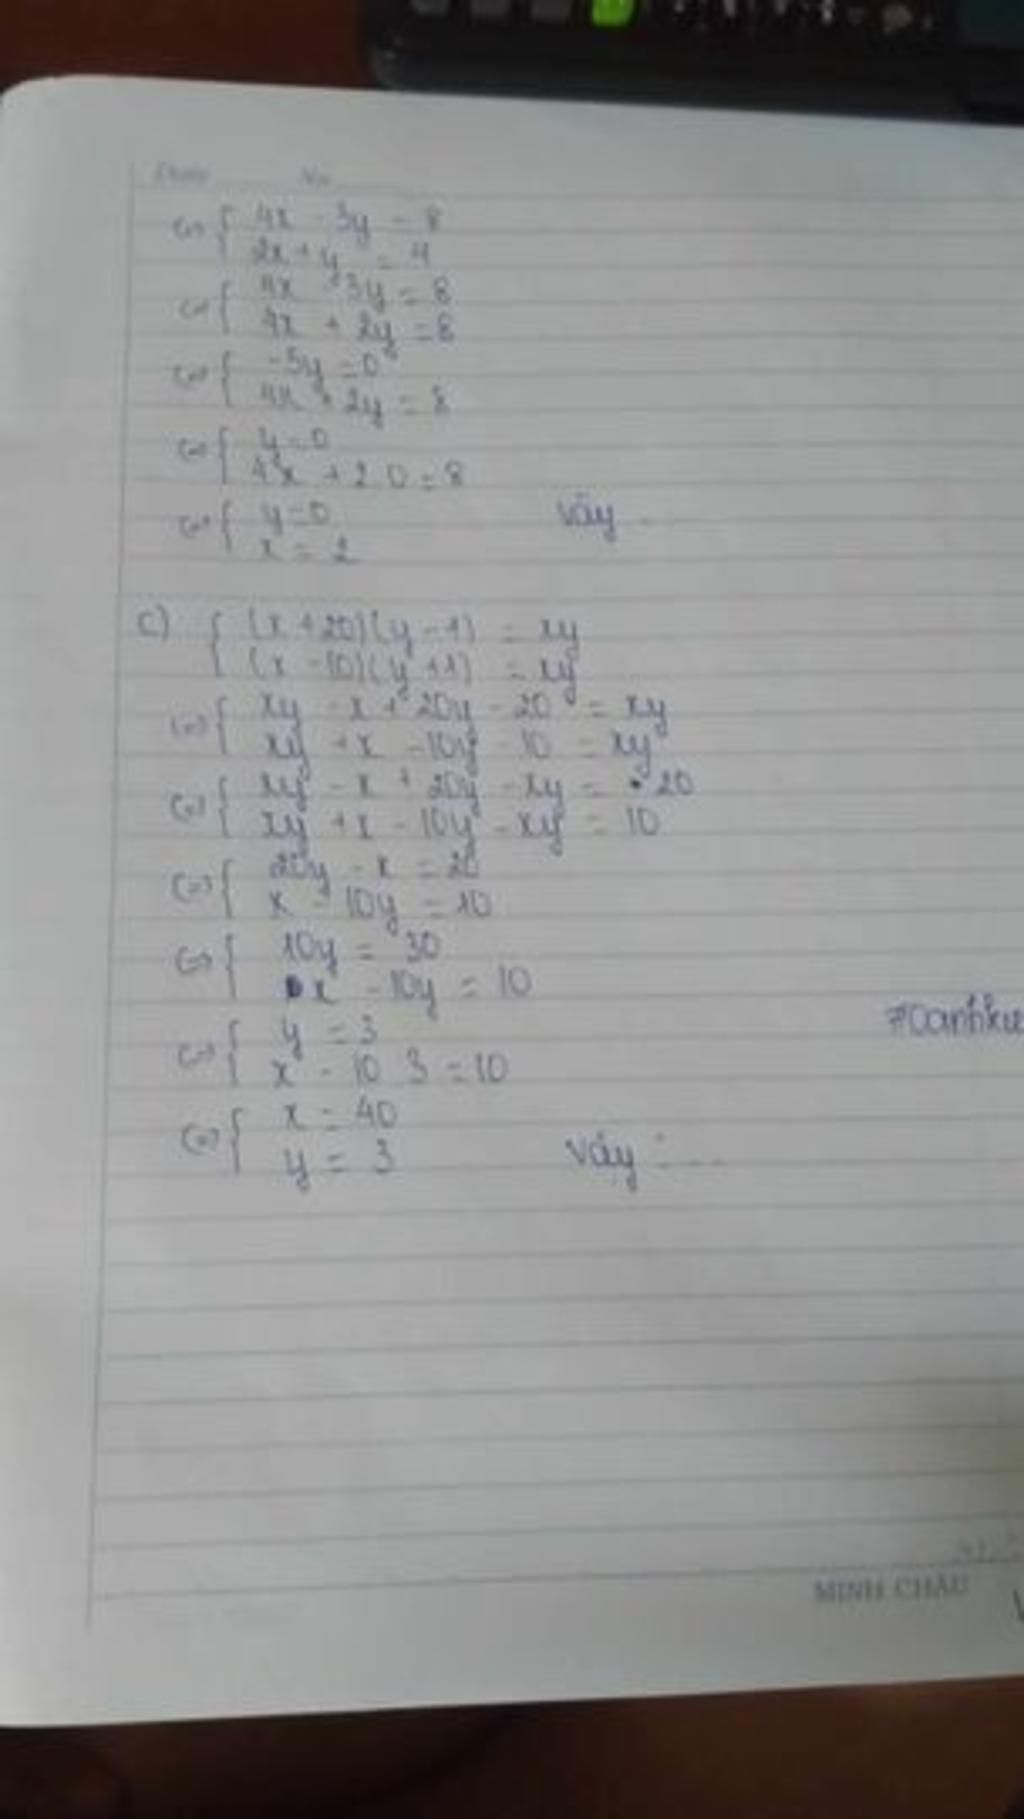 No
(=) { 4x - 3y = 8
2x + y = 4
(=) { 4x - 3y = 8
4x + 2y = 8
(=) { -5y = 0
4x + 2y = 8
(=) { y = 0
4x + 2.0 = 8
(=) { y = 0
x = 2
Vậy ...
c) { (x + 20)(y - 1) = xy
(x - 10)(y + 1) = xy
(=) { xy - x + 20y - 20 = xy
xy + x - 10y - 10 = xy
(=) { xy - x + 20y - xy = 20
xy + x - 10y - xy = 10
(=) { 20y - x = 20
x - 10y = 10
(=) { 10y = 30
x - 10y = 10
(=) { y = 3
x - 10.3 = 10
(=) { x = 40
y = 3
Vậy : ...
MINH CHÂU